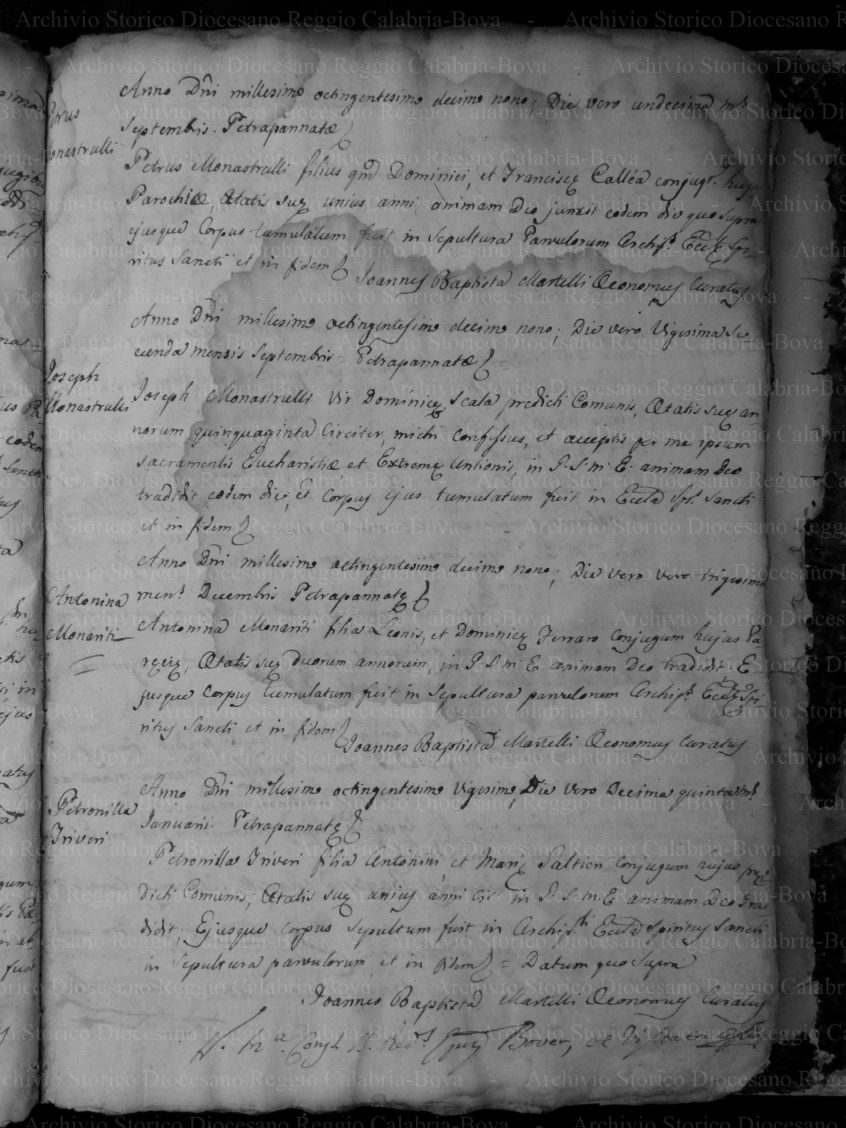 Petrus
Monastrulli
Anno Dñi millesimo octingentesimo decimo nono; Die vero undecima m.s
Septembris. Petrapannatæ
Petrus Monastrulli filius qm̃ Dominici, et Franciscæ Callea conjugũ. hujus
Parochiæ, Ætatis suæ unius anni animam Deo junxit eodem die quo supra
ejusque Corpus tumulatum fuit in sepultura Parvulorum Archip.lis Eccl.æ Spi-
ritus Sancti et in fidem
Joannes Baptista Martelli Œconomus Curatus
Anno Dñi millesimo octingentesimo decimo nono; Die vero Vigesima Se
cunda mensis Septembris = Petrapannatæ =
Joseph
Monastrulli
Joseph Monastrulli Vir Dominicæ Scala predicti Comunis, Ætatis suæ an-
norum quinquaginta Circiter, michi confessus, et acceptis per me ipsum
sacramentis Eucharistiæ et Extremæ Untionis, in J. S. m. E. animam Deo
tradidit eodem die, et Corpus ejus tumulatum fuit in Eccl.a Sp.s Sancti
et in fidem
Anno Dñi millesimo octingentesimo decimo nono; Die vero vero trigesima
men.s Decembris Petrapannatæ
Antonina
Monariti
Antonina Monariti filia Leonis, et Dominicæ Ferraro Conjugum hujus Pa
ræciæ, Ætatis suæ duorum annorum, in J. S. m. E animam Deo tradidit. E
jusque Corpus tumulatum fuit in Sepultura parvulorum Archip.lis Eccl.æ Spi
ritus Sancti et in fidem
Joannes Baptista Martelli Œconomus Curatus
Petronilla
Triveri
Anno Dñi millesimo octingentesimo Vigesimo, Die vero Decima quinta m.s
Januarii Petrapannatæ
Petronilla Triveri filia Antonini et Mariæ Saltieri Conjugum hujus præ
dicti Comunis, Ætatis suæ unius anni Cir. in J. S. m. E animam Deo Tra
didit, Ejusque corpus sepultum fuit in Archip.li Eccl.a Spiritus Sancti
in Sepultura parvulorum et in fidem = Datum quo Supra
Joannes Baptista Martelli Œconomus Curatus
Archivio Storico Diocesano Reggio Calabria-Bova